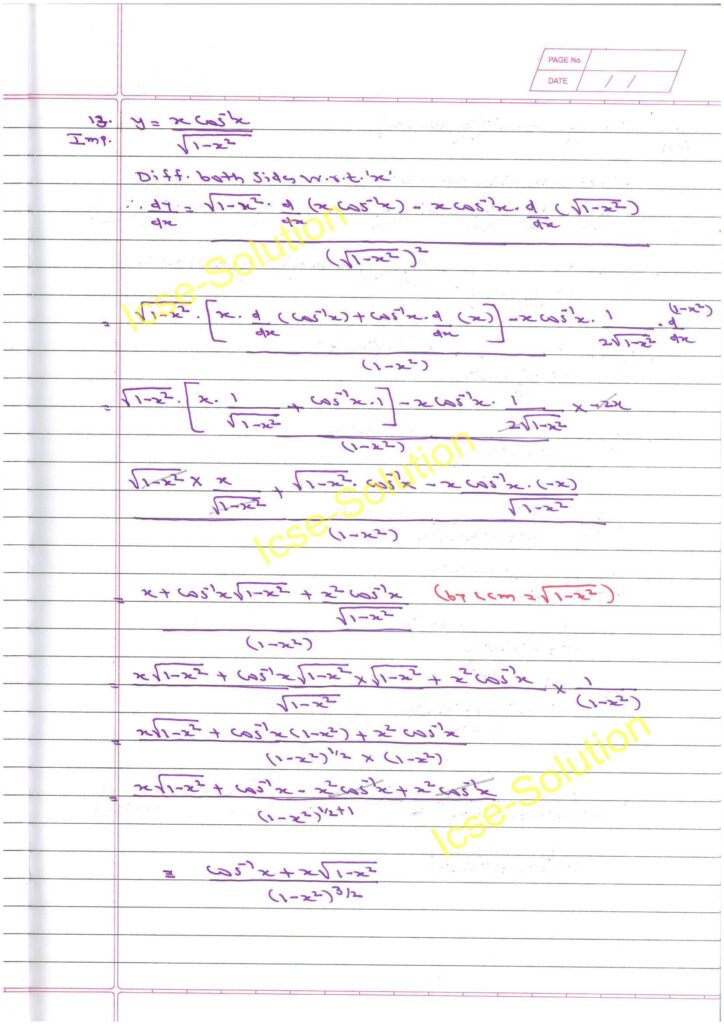 PAGE No.
DATE / /
13. y = x cos⁻¹x / √(1-x²)
Imp.
Diff. both side w.r.t. 'x'
∴ dy/dx = [√(1-x²) · d/dx (x cos⁻¹x) - x cos⁻¹x · d/dx (√(1-x²))] / (√(1-x²))²
= [√(1-x²) · [x · d/dx (cos⁻¹x) + cos⁻¹x · d/dx (x)] - x cos⁻¹x · 1/(2√(1-x²)) · d/dx (1-x²)] / (1-x²)
= [√(1-x²) · [x · 1/√(1-x²) + cos⁻¹x · 1] - x cos⁻¹x · 1/(2√(1-x²)) × -2x] / (1-x²)
[√(1-x²) × x/√(1-x²) + √(1-x²) · cos⁻¹x - x cos⁻¹x · (-x)/√(1-x²)] / (1-x²)
= [x + cos⁻¹x √(1-x²) + x² cos⁻¹x/√(1-x²)] / (1-x²) (by LCM = √(1-x²))
= [x√(1-x²) + cos⁻¹x √(1-x²) × √(1-x²) + x² cos⁻¹x] / √(1-x²) × 1/(1-x²)
= [x√(1-x²) + cos⁻¹x (1-x²) + x² cos⁻¹x] / [(1-x²)^1/2 × (1-x²)]
= [x√(1-x²) + cos⁻¹x - x² cos⁻¹x + x² cos⁻¹x] / (1-x²)^1/2+1
= [cos⁻¹x + x√(1-x²)] / (1-x²)^3/2
Icse-Solution
Icse-Solution
Icse-Solution